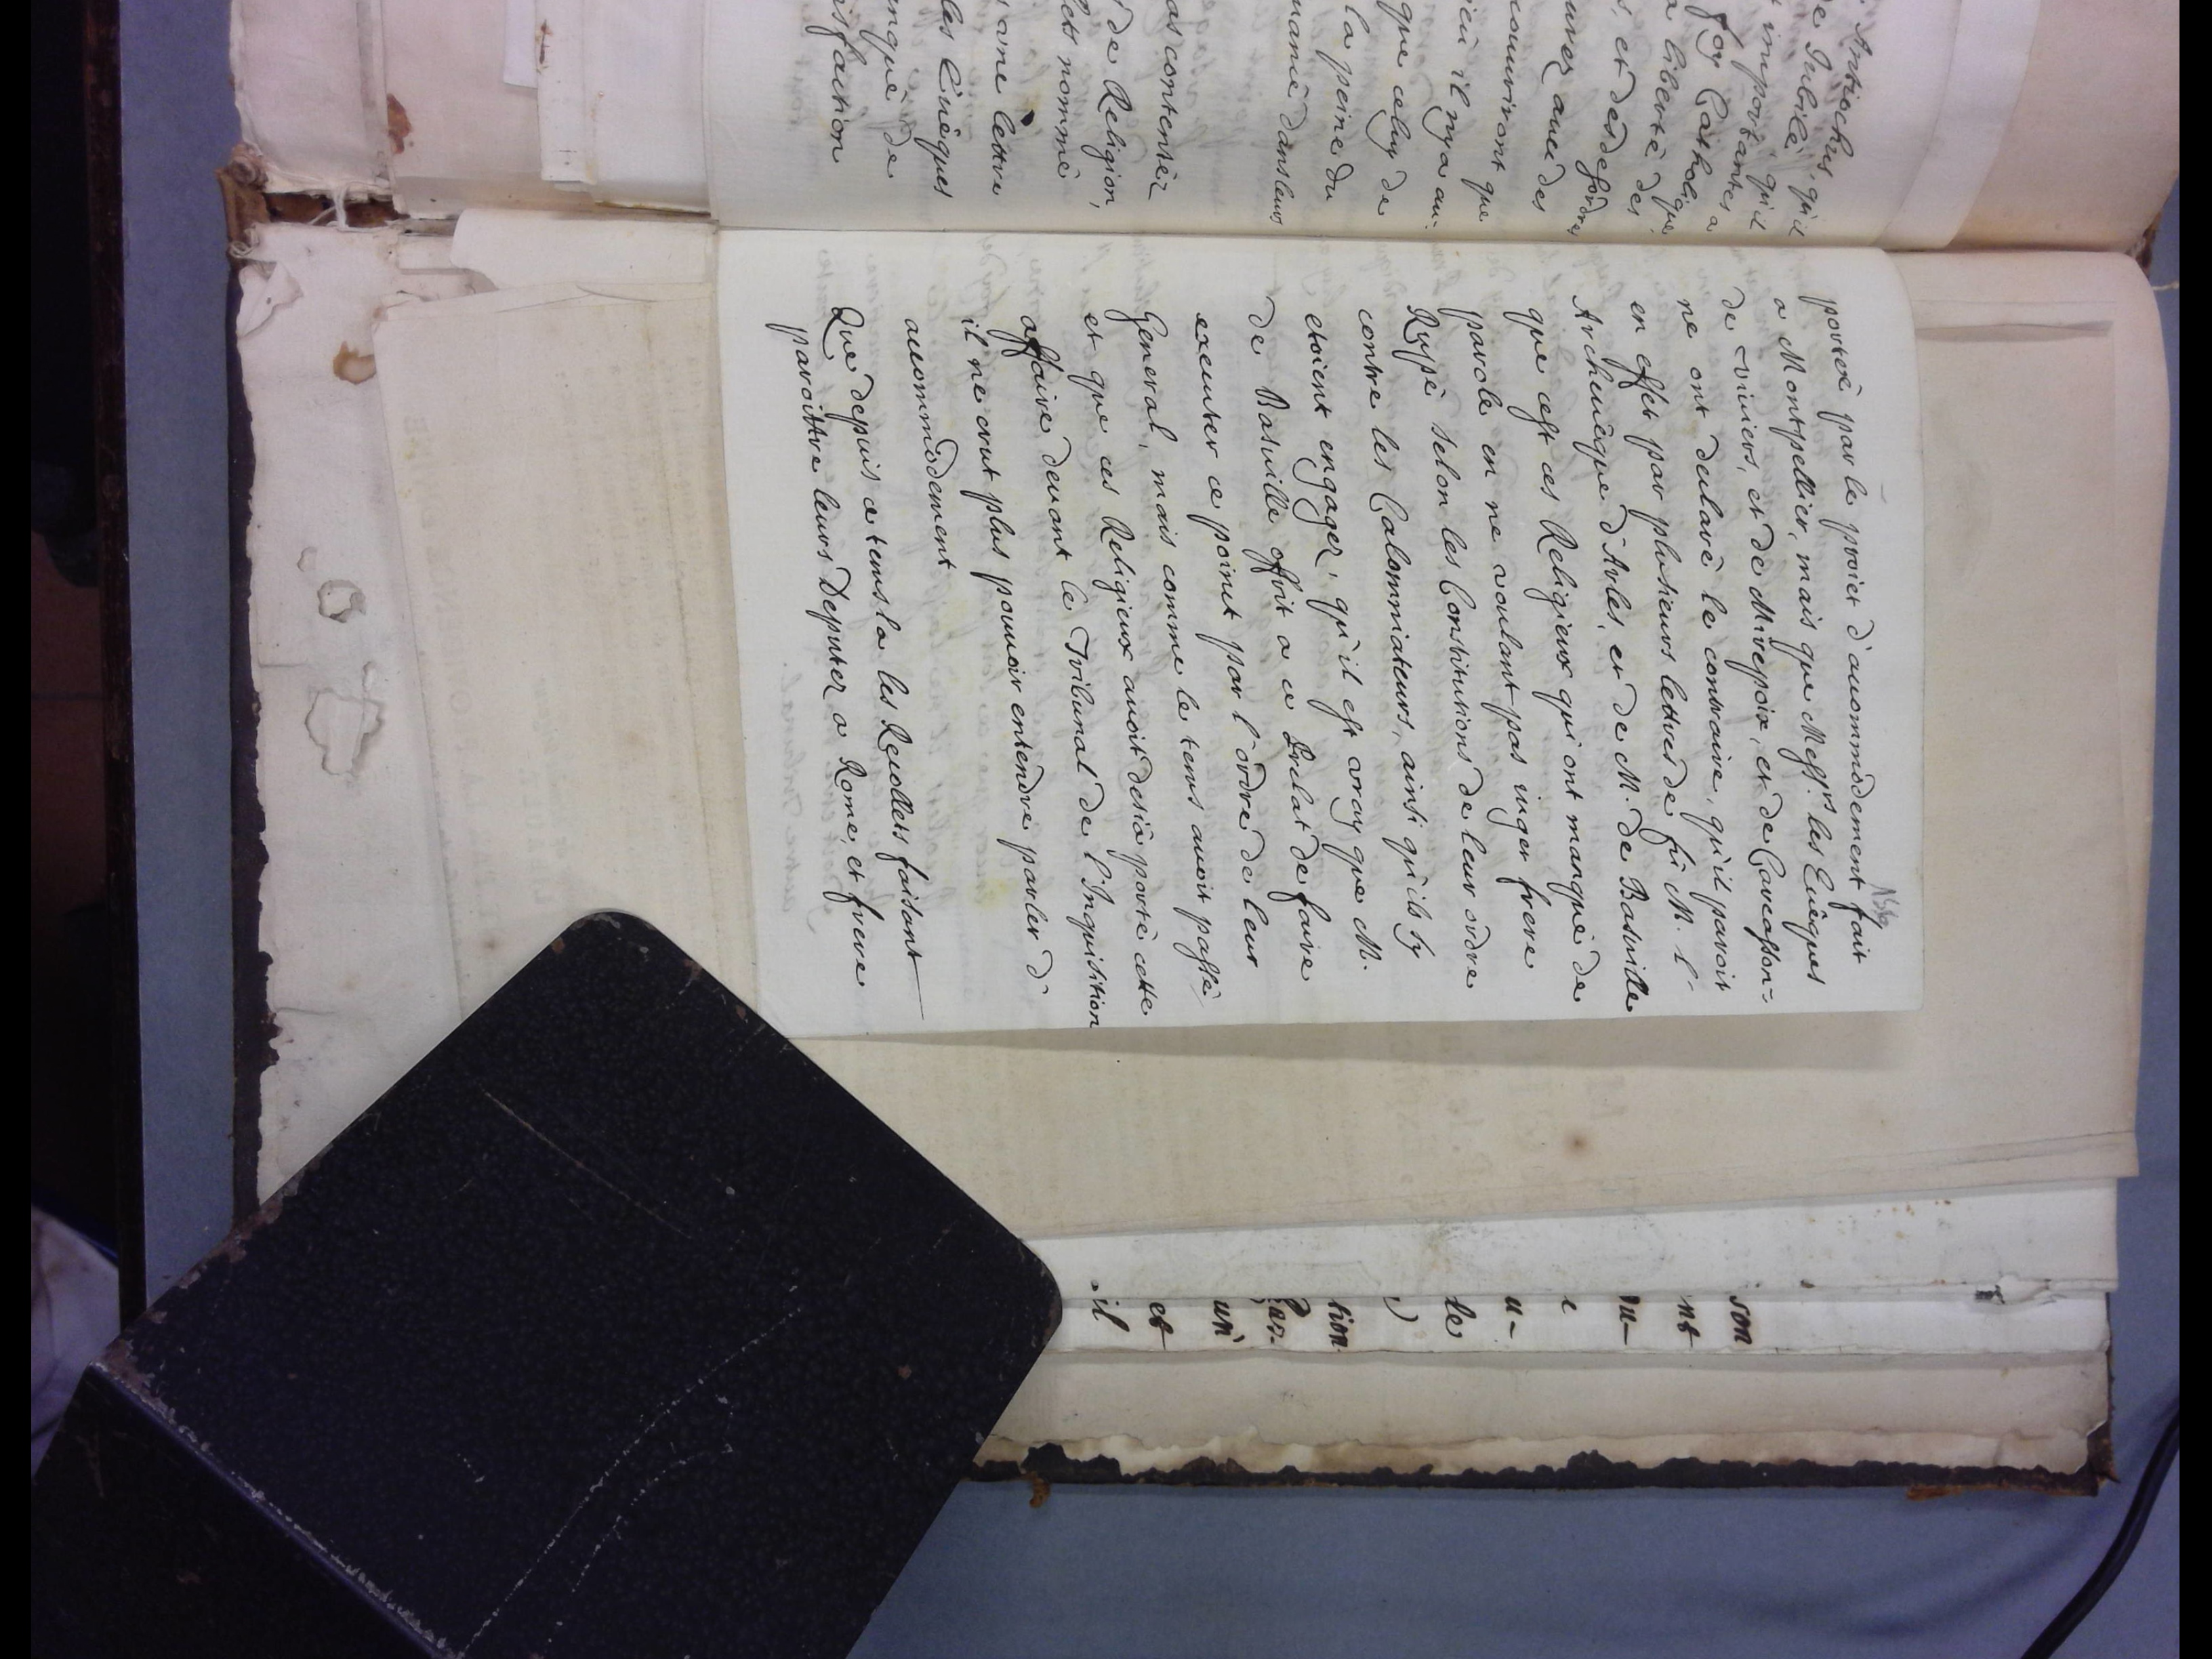 Antiochus, qu'il
de Iubilé, qu'il
importantes a
foy Catholique
a liberté des
, et des desordres
auec des
couuriront que
ieu il ny a au-
que celuy de
la peine du
dans leurs
as contenter
de Religion,
lets nommé
ame lettre
les Euêques
nqué de
isfaction
portée par le proiet d'accommodement fait
a Montpellier, mais que Messrs. les Euêques
de riuiers, et de Mirepoix, et de Carcasson=
ne ont declaré le contraire, qu'il paroit
en effet par plusieurs lettres de fû M. l'-
Archeuêque d'Arles, et de M. de Basuille
que c'est ces Religieux qui ont manqué de
parole en ne voulant pas iuger frere
Ruppé selon les Constitutions de leur ordre
contre les Calomniateurs, ainsi qu'ils sy
etoient engager, qu'il est vray que M.
de Basuille offrit a ce Prelat de faire
executer ce point par l'ordre de leur
General, mais comme le tems auoit passé
et que ces Religieux auoit desia porté cette
affaire deuant le Tribunal de l'Inquisition
il ne crut plus pouuoir entendre parler d'
accommodement
Que depuis ce tems la les Recollets faisant
paroittre leurs Deputer a Rome, et frere
son
nt
au-
e
u-
le
)
tion
un
et
il